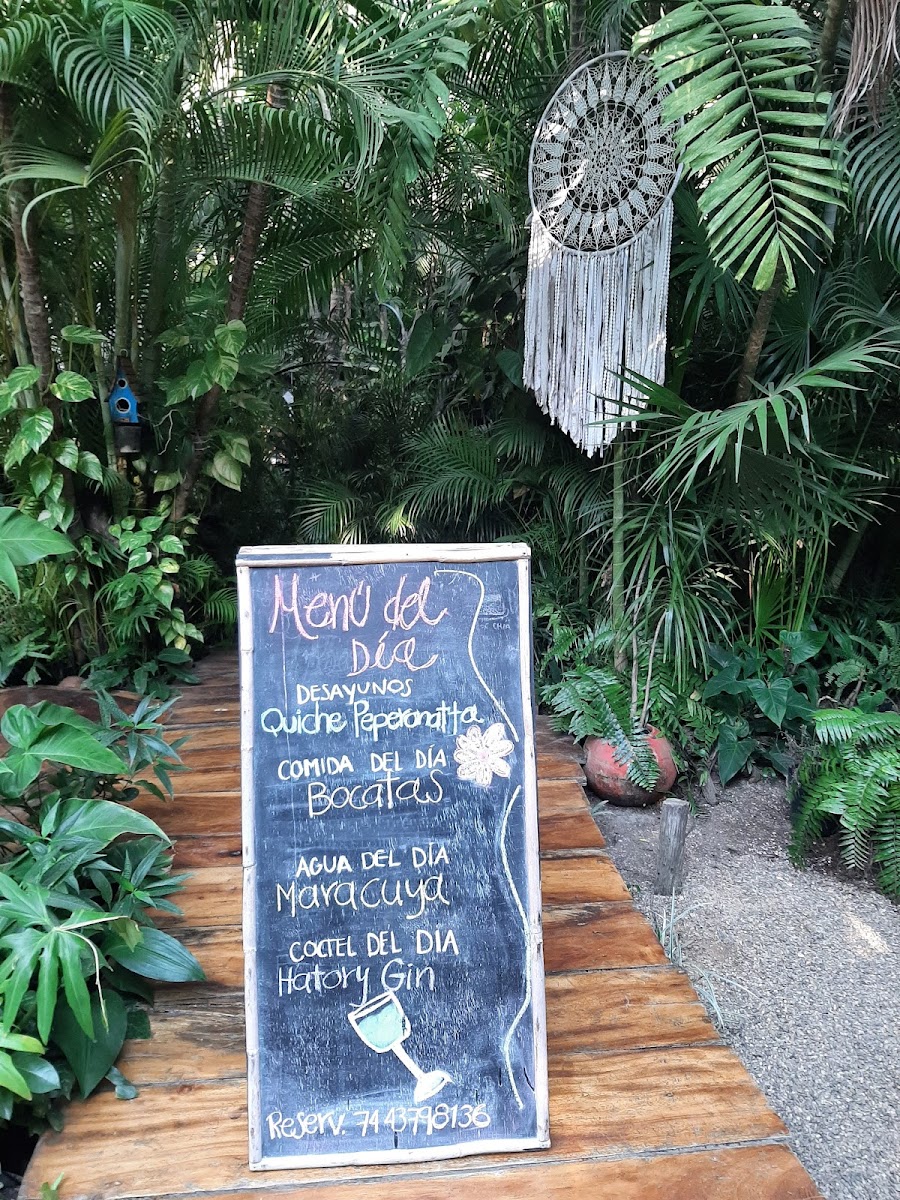 Menú del
Día
DESAYUNOS
Quiche Peperonatta
COMIDA DEL DÍA
Bocatas
AGUA DEL DÍA
Maracuya
COCTEL DEL DIA
Hatory Gin
Reserv. 7443798136